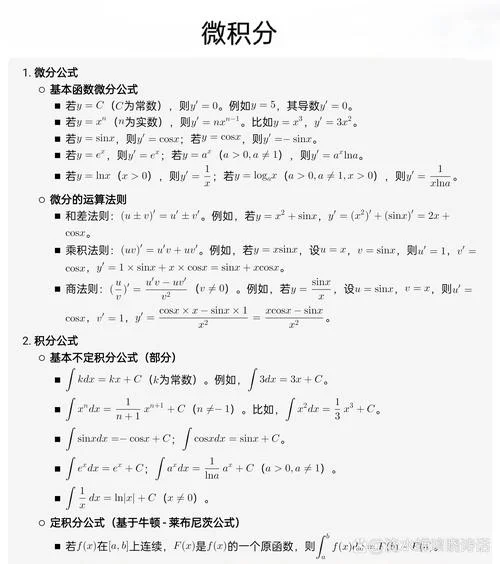 微积分
1. 微分公式
基本函数微分公式
若y = C（C为常数），则y′ = 0。例如y = 5，其导数y′ = 0。
若y = xⁿ（n为实数），则y′ = nxⁿ⁻¹。比如y = x³，y′ = 3x²。
若y = sinx，则y′ = cosx；若y = cosx，则y′ = −sinx。
若y = eˣ，则y′ = eˣ；若y = aˣ（a > 0, a ≠ 1），则y′ = aˣlna。
若y = lnx（x > 0），则y′ = 1/x；若y = logₐx（a > 0, a ≠ 1, x > 0），则y′ = 1/(xlna)。
微分的运算法则
和差法则：(u ± v)′ = u′ ± v′。例如，若y = x² + sinx，y′ = (x²)′ + (sinx)′ = 2x +
cosx。
乘积法则：(uv)′ = u′v + uv′。例如，若y = xsinx，设u = x，v = sinx，则u′ = 1，v′ =
cosx，y′ = 1 × sinx + x × cosx = sinx + xcosx。
商法则：(u/v)′ = (u′v − uv′)/v²（v ≠ 0）。例如，若y = sinx/x，设u = sinx，v = x，则u′ =
cosx，v′ = 1，y′ = (cosx × x − sinx × 1)/x² = (xcosx − sinx)/x²。
2. 积分公式
基本不定积分公式（部分）
∫kdx = kx + C（k为常数）。例如，∫3dx = 3x + C。
∫xⁿdx = 1/(n+1) xⁿ⁺¹ + C（n ≠ −1）。比如，∫x²dx = 1/3 x³ + C。
∫sinxdx = −cosx + C；∫cosxdx = sinx + C。
∫eˣdx = eˣ + C；∫aˣdx = 1/lna aˣ + C（a > 0, a ≠ 1）。
∫1/x dx = ln|x| + C（x ≠ 0）。
定积分公式（基于牛顿 - 莱布尼茨公式）
若f(x)在[a, b]上连续，F(x)是f(x)的一个原函数，则∫ₐᵇ f(x)dx = F(b) − F(a)。